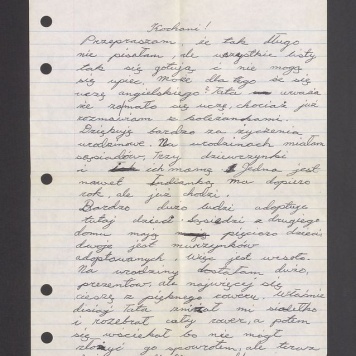 Kochani!
Przepraszam, że tak długo
nie pisałam, ale wszystkie listy
tak się gotują i nie mogą
się upiec. Może dlatego że się
uczę angielskiego? Tata uważa
że zamało się uczę, chociaż już
rozmawiam z koleżankami.
Dziękuję bardzo za życzenia
urodzinowe. Na urodzinach miałam
sąsiadów, trzy dziewczynki
i ich mamę. Jedna jest
nawet Indianką, ma dopiero
rok, ale już chodzi.
Bardzo dużo ludzi adoptuje
tutaj dzieci. Sąsiedzi z drugiego
domu mają pięcioro dzieci
dwoje jest murzynków
adoptowanych, więc jest wesoło.
Na urodziny dostałam dużo
prezentów, ale najwięcej się
cieszę z pięknego roweru. Właśnie
dzisiaj Tata zniżał mi siodełko
i rozebrał cały rower, a potem
się wściekał bo nie mógł
złożyć go spowrotem, ale teraz